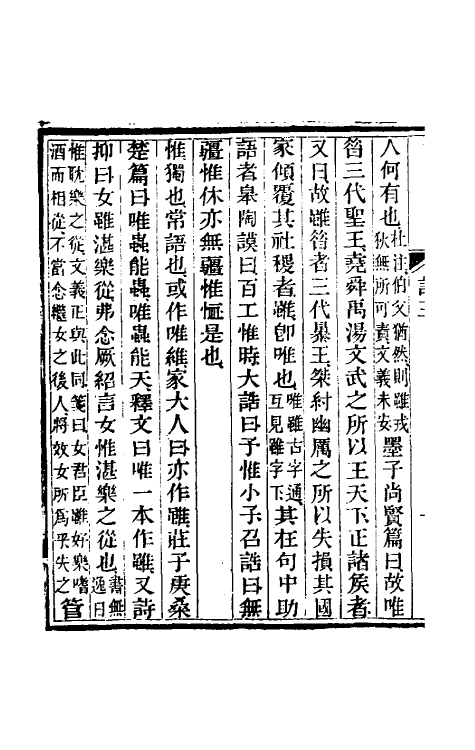 人何有也杜注伯父猶然則雖戎狄無所可責文義未安墨子尚賢篇曰故唯
昔三代聖王堯舜禹湯文武之所以王天下正諸矦者
又曰故雖昔者三代暴王桀紂幽厲之所以失損其國
家傾覆其社稷者雖卽唯也唯雖古字通互見雖字下其在句中助
語者皋陶謨曰百工惟時大誥曰予惟小子召誥曰無
疆惟休亦無疆惟恤是也
惟獨也常語也或作唯維家大人曰亦作雖莊子庚桑
楚篇曰唯蟲能蟲唯蟲能天釋文曰唯一本作雖又詩
抑曰女雖湛樂從弗念厥紹言女惟湛樂之從也書無逸曰
惟耽樂之從文義正與此同箋曰女君臣雖好樂嗜酒而相從不當念繼女之後人將效女所爲乎失之管